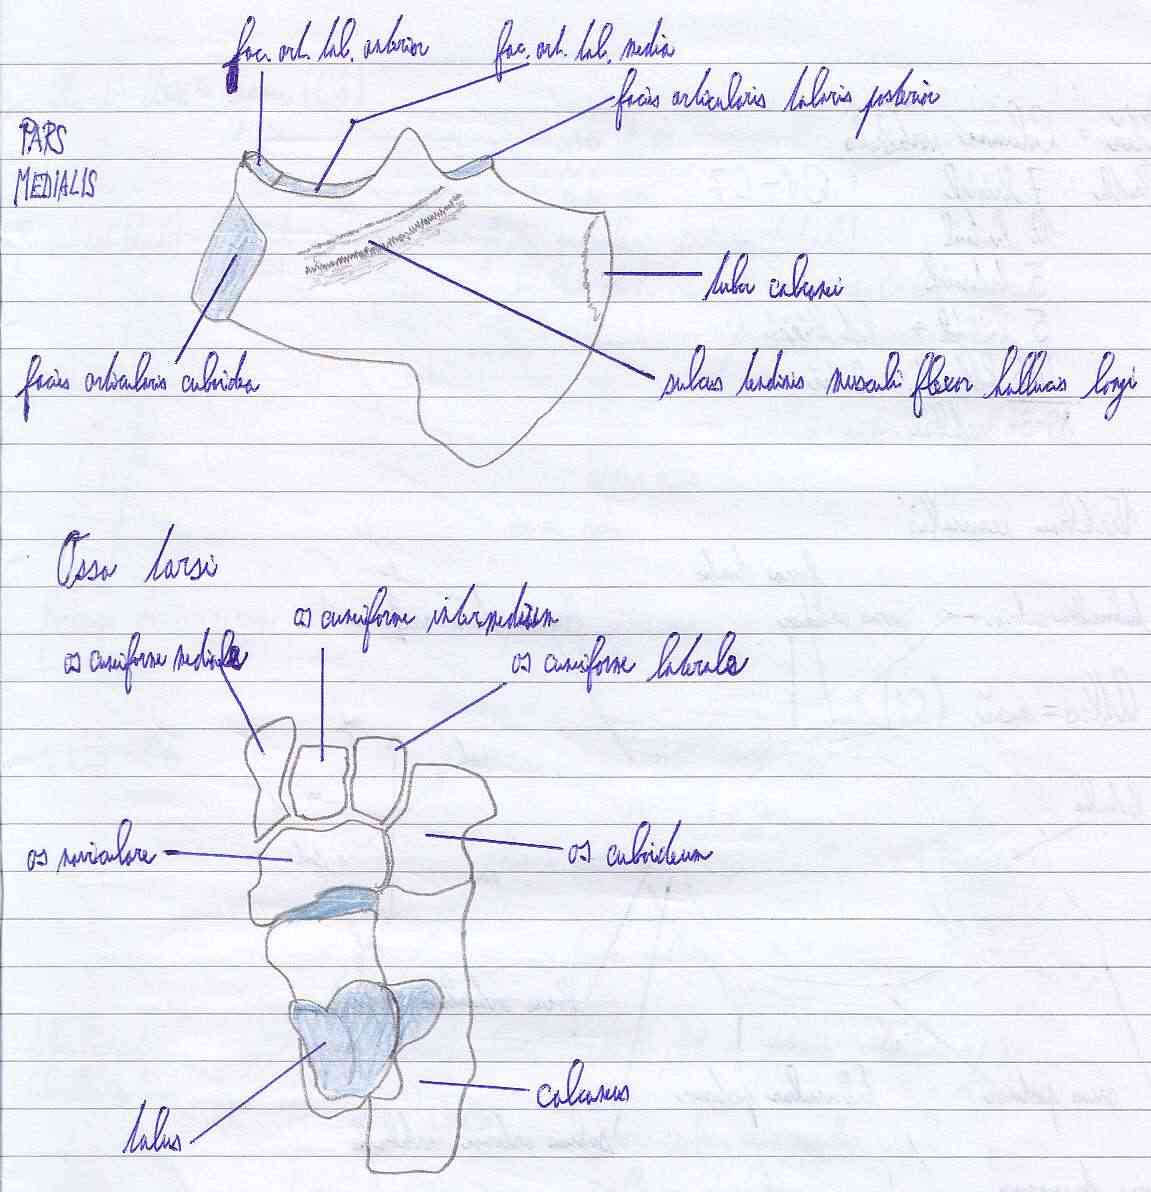 fac. art. tal. anterior
fac. art. tal. media
facies articularis talaris posterior
PARS
MEDIALIS
tuber calcanei
facies articularis cuboidea
sulcus tendinis musculi flexor hallucis longi
Ossa tarsi
os cuneiforme intermedium
os cuneiforme mediale
os cuneiforme laterale
os naviculare
os cuboideum
calcaneus
talus